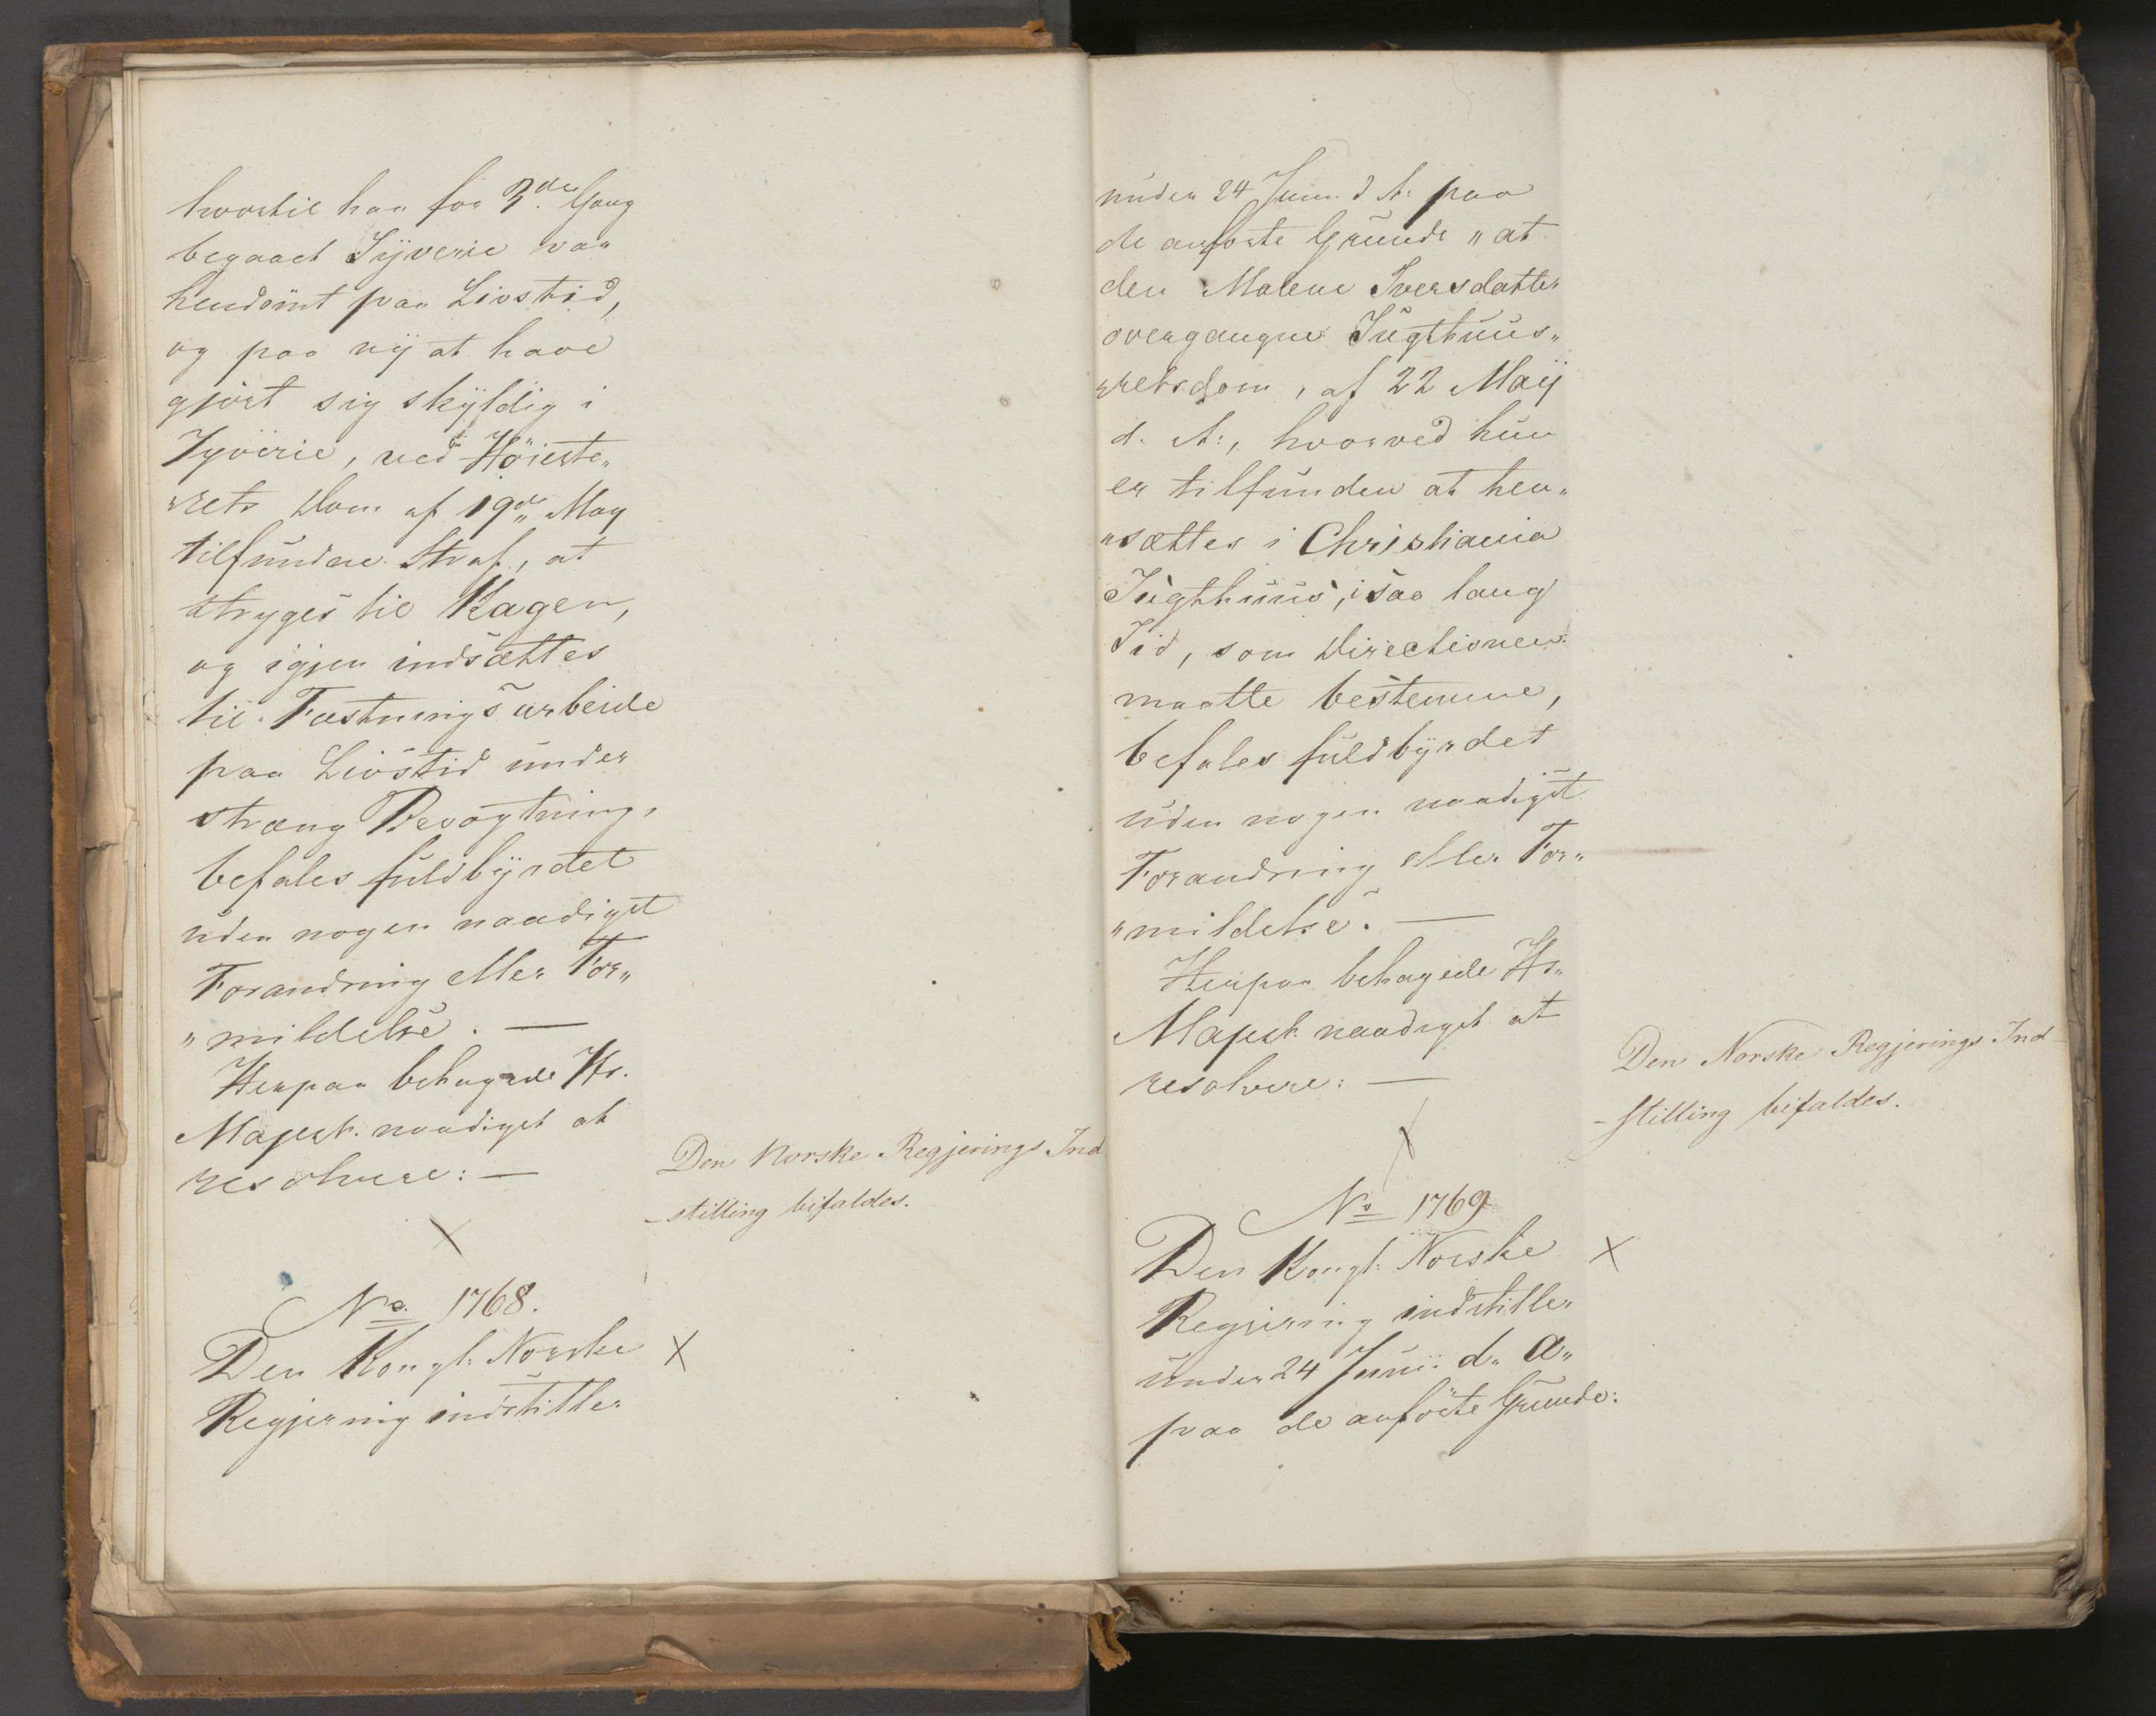 hvortil han for 3de Gang
begaaet Tyverie var
hendömt paa Livstid,
og paa nÿ at have
gjört sig skÿldig i
Tyverie, ved Höieste„
„rets Dom af 19de May
tilfundne Straf, at
stryges til Kagen,
og igjen indsættes
til Fæstningsarbeide
paa Livstid under
streng Bevogtning,
befales fuldbÿrdet
uden nogen naadigst
Forandring eller For„
„mildelse. —
Herpaa behagede Hs.
Majest. naadigst at
resolvere: —
Den Norske Regjerings Ind
-stilling bifaldes.
No. 1768.
Den Kongl. Norske
Regjering indstiller
under 24 Juni d. A: paa
de anförte Grunde „at
den Malene Iversdatter
overgangne Tugthuus„
„retsdom, af 22 Maÿ
d. A:, hvorved hun
er tilfunden at hen„
„sættes i Christiania
Tugthuus, i saa lang
Tid, som Directionen
maatte bestemme,
befales fuldbÿrdet
uden nogen naadigst
Forandring eller For„
„mildelse. —
Herpaa behagede Hs.
Majest. naadigst at
resolvere: —
Den Norske Regjerings Ind-
-stilling bifaldes.
No 1769
Den Kongl: Norske
Regjering indstiller
under 24 Junii d. A.
paa de anförte Grunde: